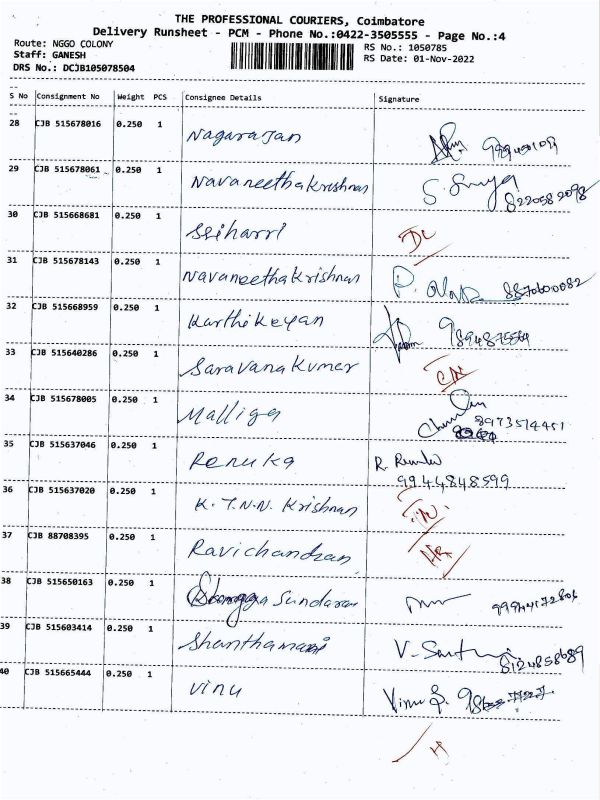 THE PROFESSIONAL COURIERS, Coimbatore
Delivery Runsheet - PCM - Phone No.:0422-3505555 - Page No.:4
Route: NGGO COLONY
RS No.: 1050785
Staff: GANESH
RS Date: 01-Nov-2022
DRS No.: DCJB105078504
S No Consignment No Weight PCS Consignee Details Signature
28 CJB 515678016 0.250 1 Nagarajan
29 CJB 515678061 0.250 1 Navaneethakrishnan S. Surya 8220582098
30 CJB 515668681 0.250 1 Ssiharri DL
31 CJB 515678143 0.250 1 Navaneethakrishnan 8870600082
32 CJB 515668959 0.250 1 Karthikeyan
33 CJB 515640286 0.250 1 Saravana Kumar
34 CJB 515678005 0.250 1 Malliga 8973514451
35 CJB 515637046 0.250 1 Renuka R. Renuka
9944848599
36 CJB 515637020 0.250 1 K.T.N.N. Krishnan
37 CJB 88708395 0.250 1 Ravichandran
38 CJB 515650163 0.250 1 Sundaram
39 CJB 515603414 0.250 1 Shanthamani 8124858689
40 CJB 515665444 0.250 1 Vinu
H